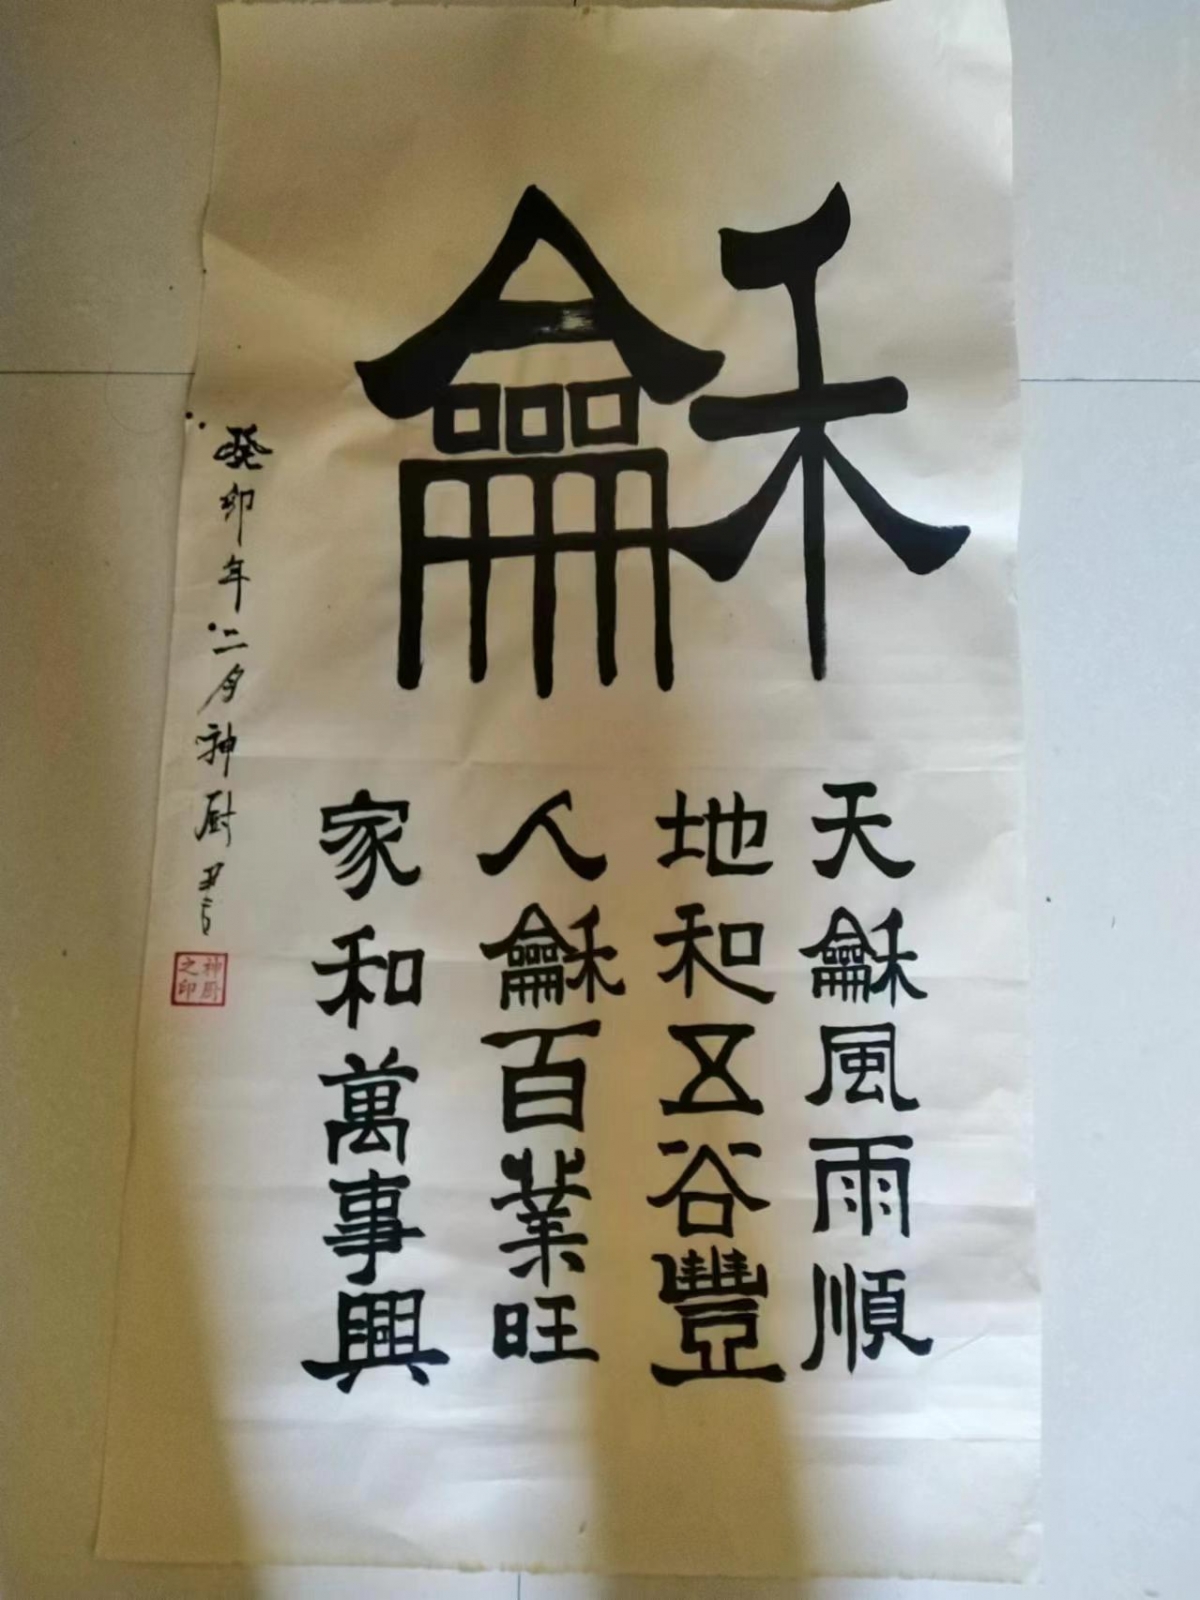 龢
天龢風雨順
地和五谷豐
人龢百業旺
家和萬事興
癸卯年二月神厨書
神厨之印